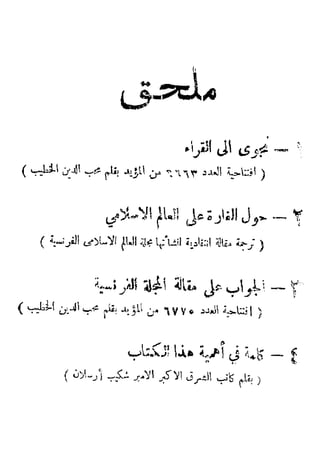 ملحق
١ — نجوى الى القراء
( افتتاحية العدد ٦٦٦٣ من المؤيد بقلم محب الدين الخطيب )
٢ — حول الغارة على العالم الاسلامي
( ترجمة مقالة انتقادية انشأتها مجلة العالم الاسلامى الفرنسية )
٣ — الجواب على مقالة المجلة الفرنسية
( افتتاحية العدد ٦٧٧٥ من المؤيد بقلم محب الدين الخطيب )
٤ — كلمة في أهمية هذا الكتاب
( بقلم كاتب الشرق الاكبر الامير شكيب أرسلان )